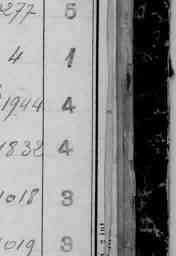 277 6
4 1
1944 4
1832 4
1018 3
1019 3